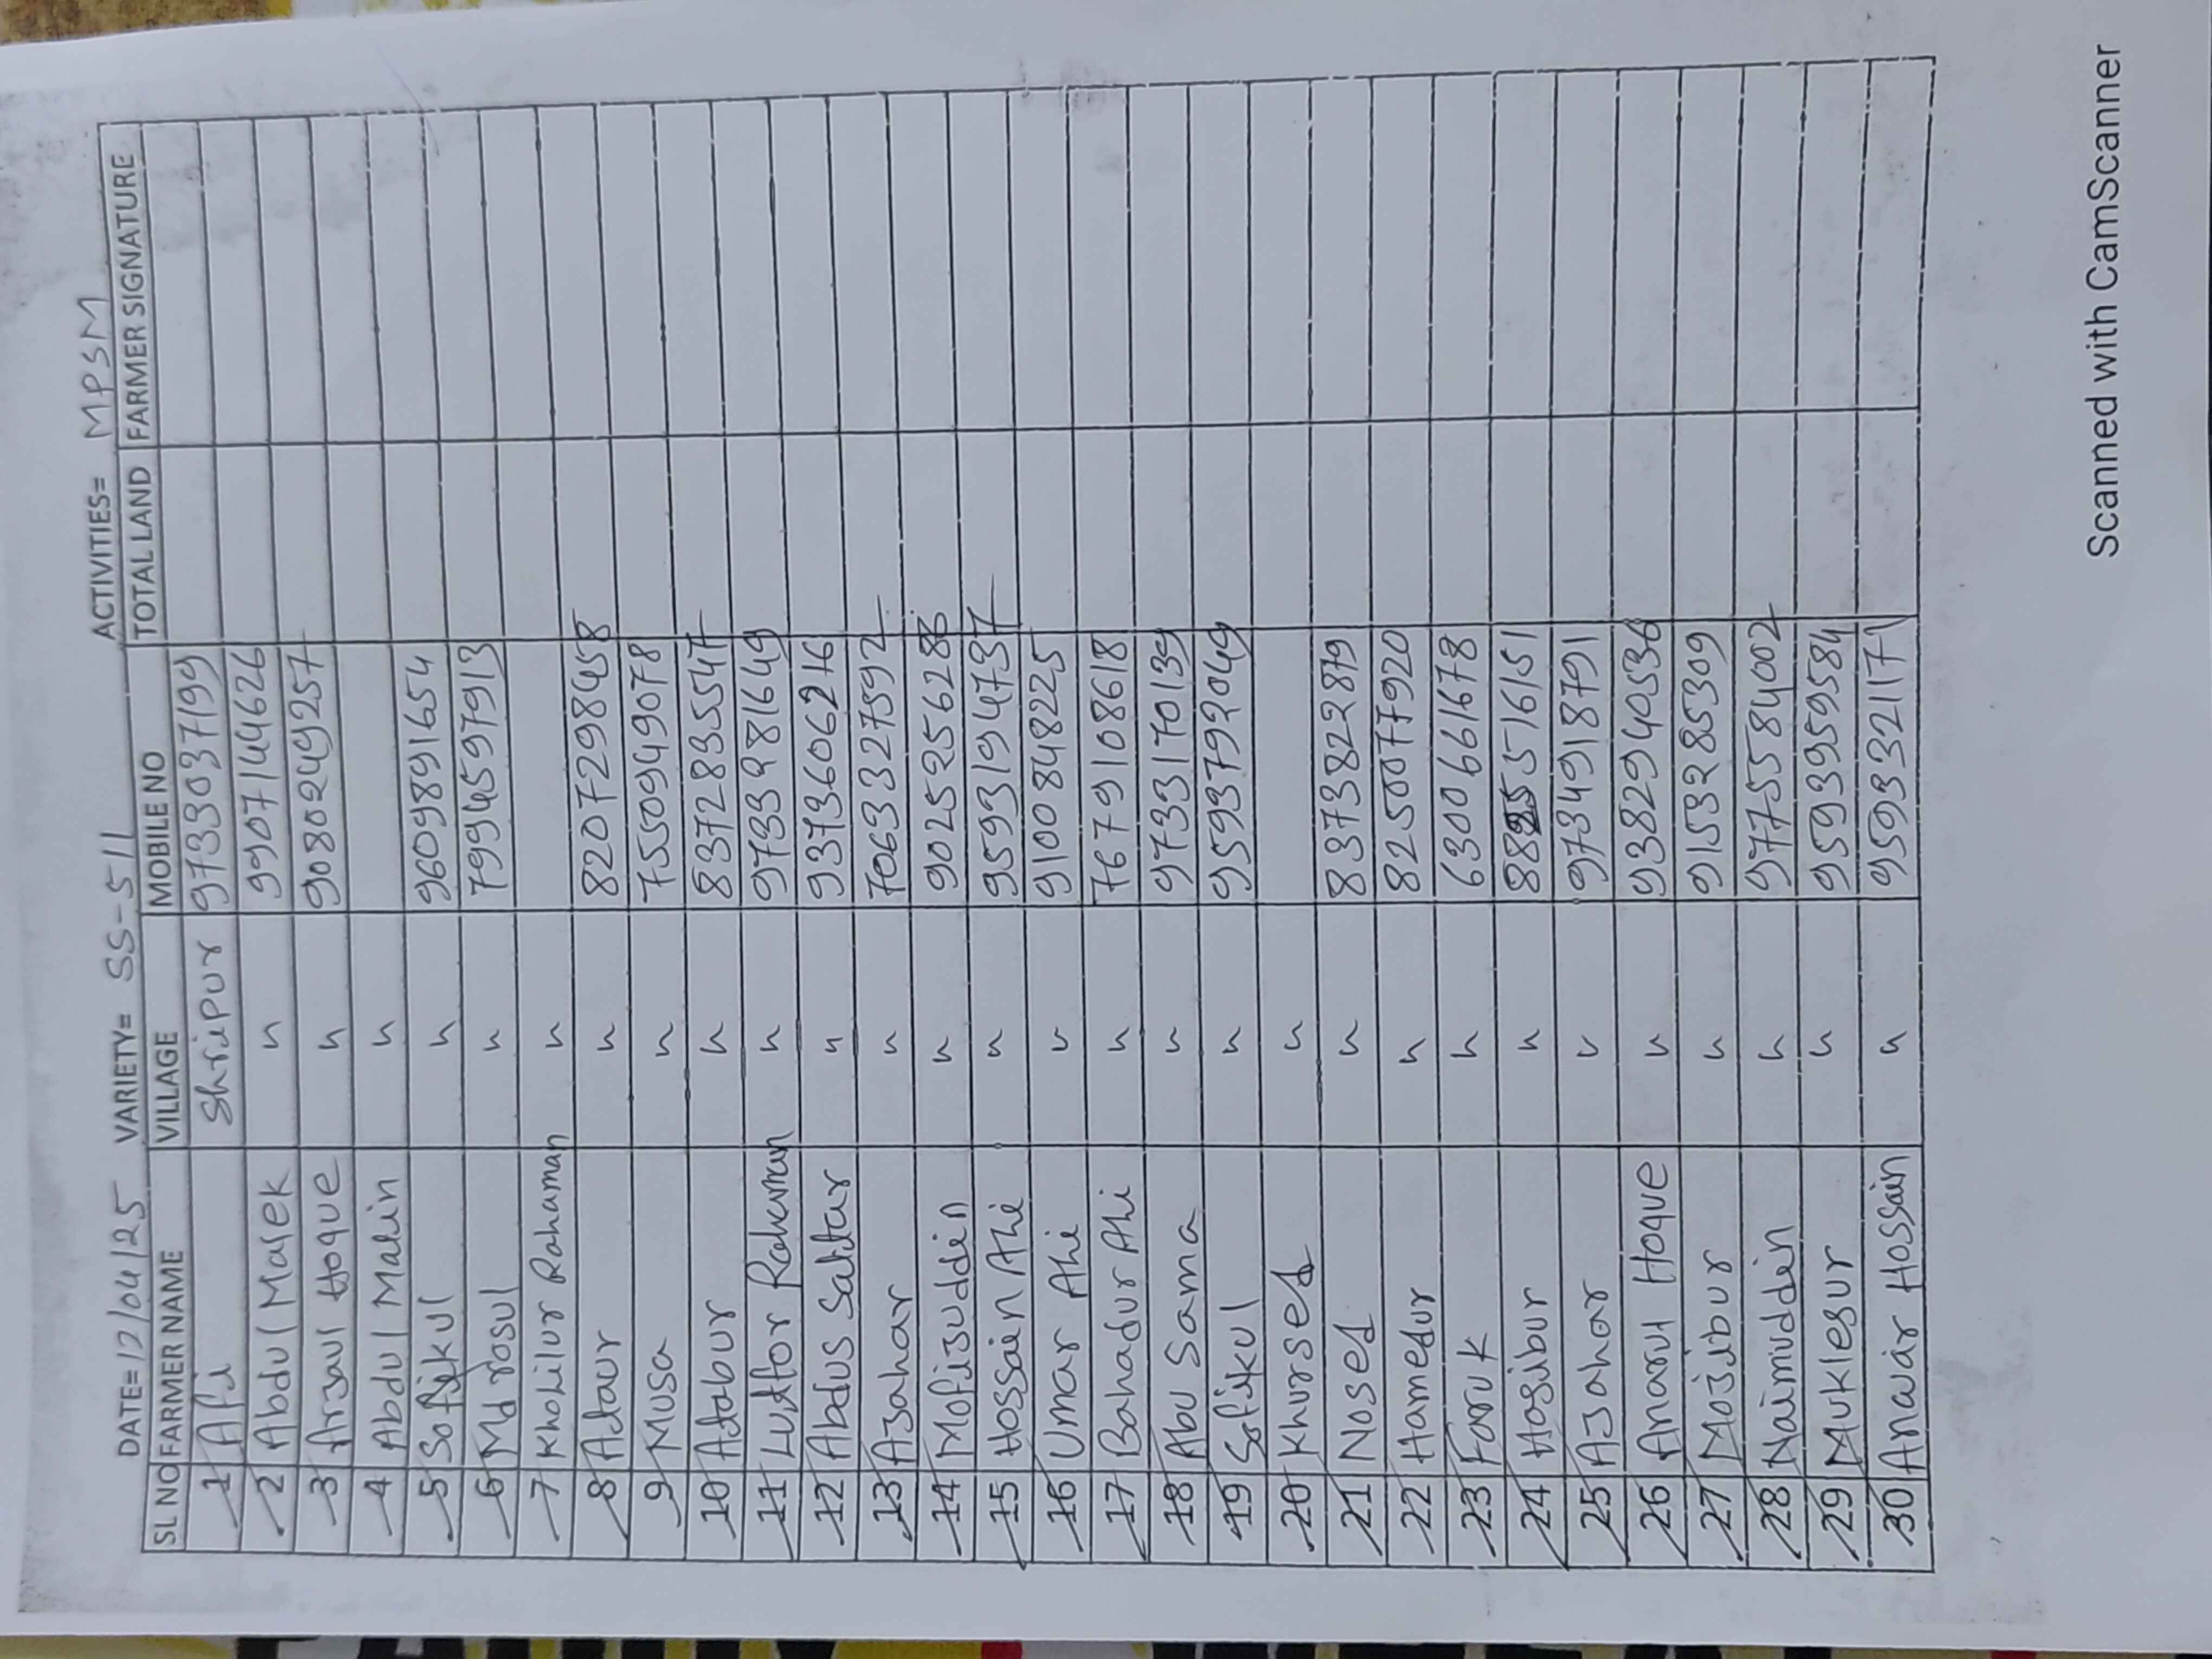 DATE= 12/04/25 VARIETY= SS-511 ACTIVITIES= MPSM
SL NO FARMER NAME VILLAGE MOBILE NO TOTAL LAND FARMER SIGNATURE
1 Afi Shripur 9733037199
2 Abdul Marek " 9907144626
3 Arzaul Hoque " 9080249257
4 Abdul Malin "
5 Sofikul " 9609891654
6 Md rosul " 7994597913
7 Kholilur Rahaman "
8 Ataur " 8207298458
9 Musa " 7550949078
10 Atabur " 8372835547
11 Lutfor Rahaman " 9733981649
12 Abdus Sattar " 9373606216
13 Azahar " 7063327592
14 Mofizuddin " 9025256286
15 Hossain Ali " 9593194737
16 Umar Ali " 9100848225
17 Bahadur Ali " 7679108618
18 Abu Sama " 9733170139
19 Sofikul " 9593792049
20 Khursed "
21 Nosed " 8373822879
22 Hamedur " 8250077920
23 Faruk " 6300661678
24 Hasibur " 8825516151
25 AJahar " 9734918791
26 Anarul Hoque " 9382940536
27 Mojibur " 9153285309
28 Naimuddin " 9775584002
29 Muklesur " 9593959584
30 Anwar Hossain " 9593321171
Scanned with CamScanner